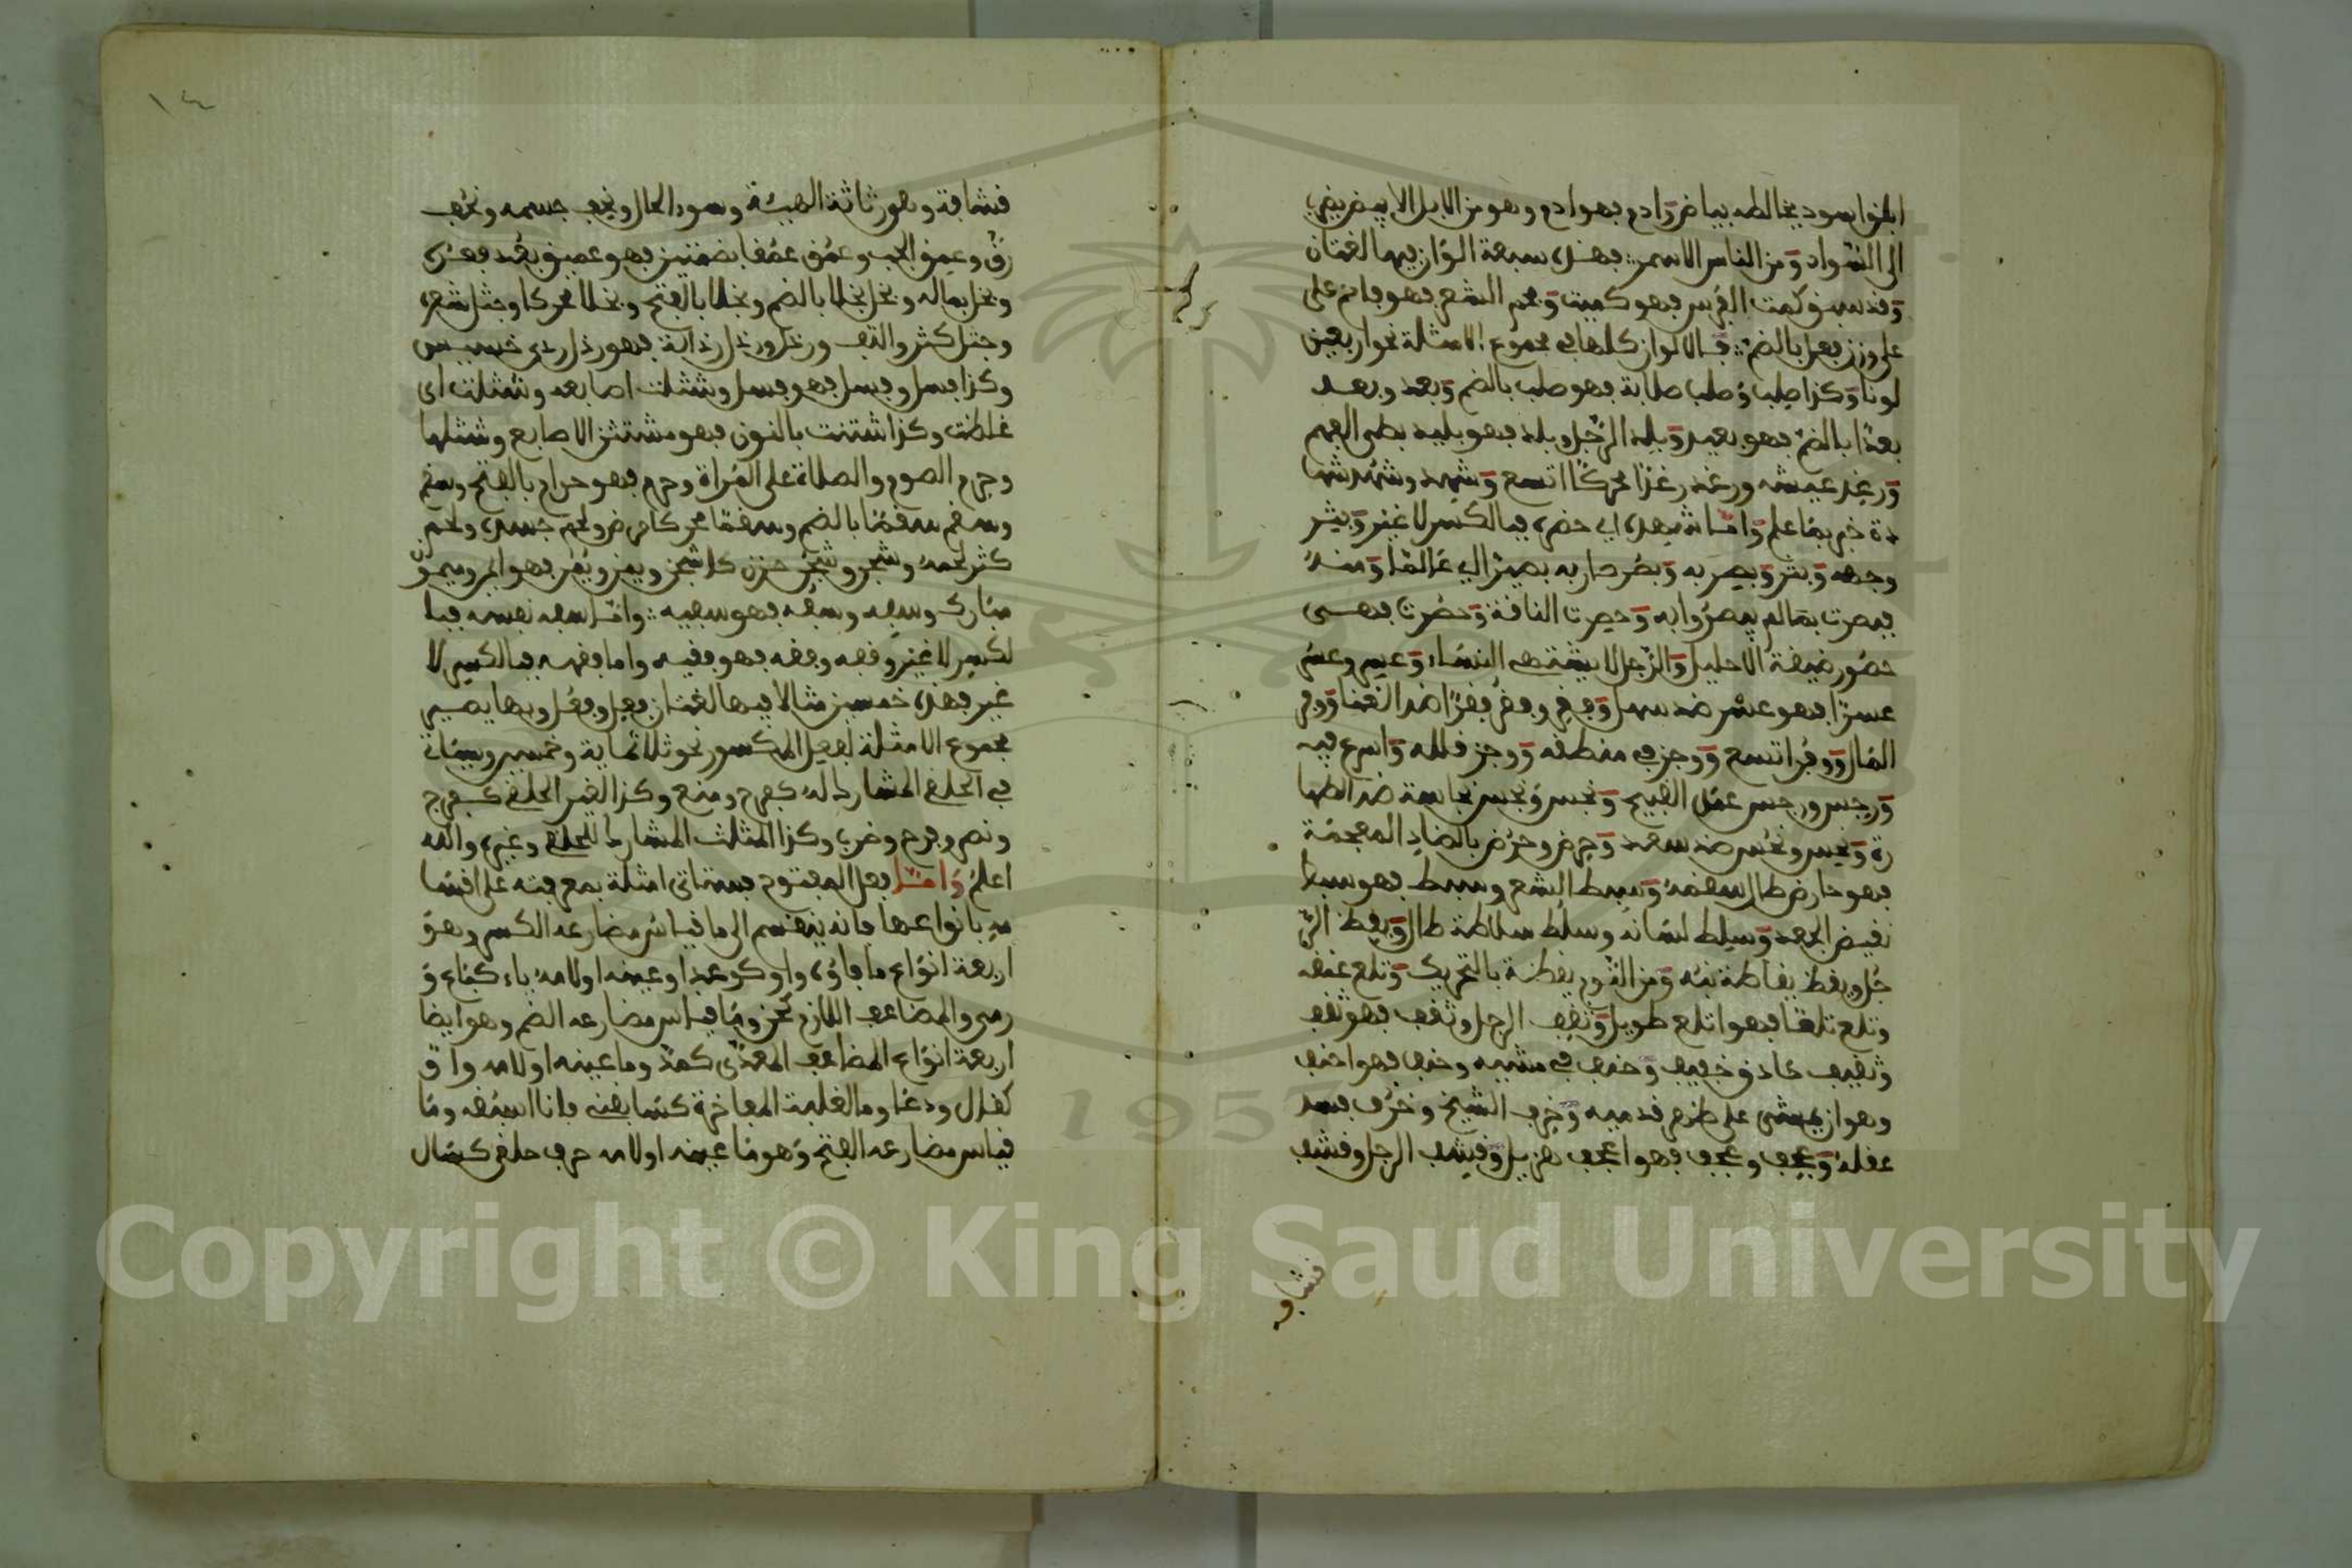 الجز اسود يخالطه بياض وادم فهو ادم وهو من الابل الابيض يضرب
الى السواد ومن الناس الاسمر فهذه سبعة الوان فيها لغتان
وقد سبق كمت الفرس فهو كميت وفحم الشعر فهو فاحم على
على وزن فعل بالضم فالالوان كلها في مجموع الامثلة نحو اربعين
لونا وكذا صلب وصلب صلابة فهو صلب بالضم وبعد وبعد
بعدا بالضم فهو بعيد وبلد الرجل وبلد فهو بليد بطى الفهم
ورغد عيشه ورغد رغدا محركا اتسع وشهد وشهد شها
دة خبر بما علم واما شهده اي حضره فبالكسر لا غير وبشر
وجهه وبشر وبصر به وبصر صار به بصيرا اي عالما ومنه
فبصرت بما لم يبصروا به وحصرت الناقة وحصرت فهى
حصور ضيقة الاحليل والرجل لا يشتهى النساء وعسر وعسر
عسرا فهو عسر ضد سهل وفقر وفقر فقرا ضد الغنا ووفر
المال ووفر اتسع ووجز في منطقه ووجز قلله واسرع فيه
ورجس ورجس عمل القبيح ونجس ونجس نجاسة ضد الطها
رة ونحس ونحس ضد سعد وحرض وحرض بالضاد المعجمة
فهو حارض طال سقمه وسبط الشعر وسبط فهو سبط
نقيض الجعد وسلط لسانه وسلط سلاطة طال ويقظ الر
جل ويقظ يقاظة نبه ومن النوم يقظة بالتحريك وتلع عنقه
وتلع تلعا فهو اتلع طويل وثقف الرجل وثقف فهو ثقف
وثقيف حاذق خفيف وحنف في مشيه وحنف فهو احنف
وهو ان يمشى على ظهر قدميه وخرف الشيخ وخرف فسد
عقله وعجف وعجف فهو اعجف هزيل وقشف الرجل وقشف
قشاف
١٤
قشافة وهو رثاثة الهيئة وسوء الحال ونحف جسمه ونحف
رق وعمق الجب وعمق عمقا بضمتين فهو عميق بعد قعره
وبخل بماله وبخل بخلا بالضم وبخلا بالفتح وبخلا محركا وجثل شعره
وجثل كثر والتف ورذل ورذل رذالة فهو رذل ردى خسيس
وكذا فسل وفسل فهو فسل وشثلت اصابعه وشثلت اى
غلظت وكذا شثنت بالنون فهو مشتثن الاصابع وشثلها
وحرم الصوم والصلاة على المراة وحرم فهو حرام بالفتح وسقم
وسقم سقما بالضم وسقما محركا مرض ولحم جسده ولحم
كثر لحمه وشجن وشجن حزن كاشجن ويمن ويمن فهو ايمن وميمون
مبارك وسفه وسفه فهو سفيه واما سفه نفسه فبا
لكسر لا غير وفقه وفقه فهو فقيه واما فقهه فبالكسر لا
غير فهذه خمسين مثالا فيها لغتان فعل وفعل وبها يصير
مجموع الامثلة لفعل المكسور نحو ثلاثماية وخمس وسياتى
في الحلقي المشارك له كفرح ومنع وكذا الغير الحلقي كفرح
ونصر وفرح وضرب وكذا المثلث المشارك للحلقي وغيره والله
اعلم واما فعل المفتوح فستاتى امثلة بمعرفته على اقسا
مه بانواعها فانه ينقسم الى ما قياس مضارعه الكسر وهو
اربعة انواع ما فاؤه واو كوعد او عينه او لامه ياء كباع و
رمى والمضاعف اللازم كحن وما قياس مضارعه الضم وهو ايضا
اربعة انواع المضاعف المعدى كمد وما عينه او لامه واو
كقال ودعا وما لغلبة المفاخرة كسابقنى فانا اسبقه وما
قياس مضارعه الفتح وهو ما عينه او لامه حرف حلق كسال
Copyright © King Saud University
1957